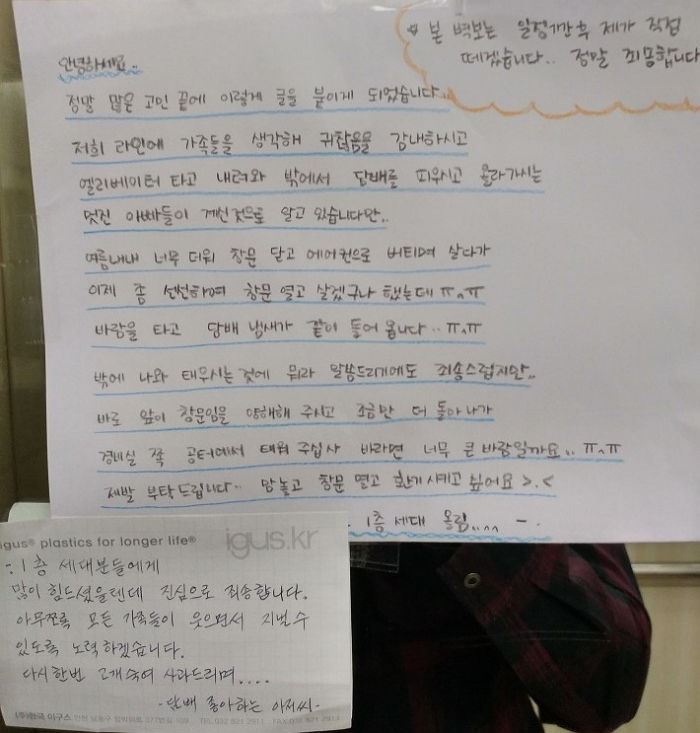 * 본 벽보는 일정기간 후 제가 직접
떼겠습니다.. 정말 죄송합니다
안녕하세요..
정말 많은 고민 끝에 이렇게 글을 붙이게 되었습니다..
저희 라인에 가족들을 생각해 귀찮음을 감내하시고
엘리베이터 타고 내려와 밖에서 담배를 피우시고 올라가시는
멋진 아빠들이 계신것으로 알고 있습니다만..
여름내내 너무 더워 창문 닫고 에어컨으로 버티며 살다가
이제 좀 선선하여 창문 열고 살겠구나 했는데 ㅠ^ㅠ
바람을 타고 담배 냄새가 같이 들어옵니다.. ㅠ^ㅠ
밖에 나와 태우시는 것에 뭐라 말씀드리기에도 죄송스럽지만..
바로 앞이 창문임을 양해해 주시고 조금만 더 돌아나가
경비실 쪽 공터에서 태워 주십사 바라면 너무 큰 바람일까요.. ㅠ^ㅠ
제발 부탁드립니다.. 맘놓고 창문 열고 환기시키고 싶어요 >.<
1층 세대 올림....
igus® plastics for longer life® igus.kr
1층 세대분들에게
많이 힘드셨을텐데 진심으로 죄송합니다.
아무쪼록 모든 가족들이 웃으면서 지낼수
있도록 노력하겠습니다.
다시한번 고개숙여 사과드리며....
-담배 좋아하는 아저씨-
(주)한국 이구스 인천 TEL.032 821 2911 FAX.032 821 2913